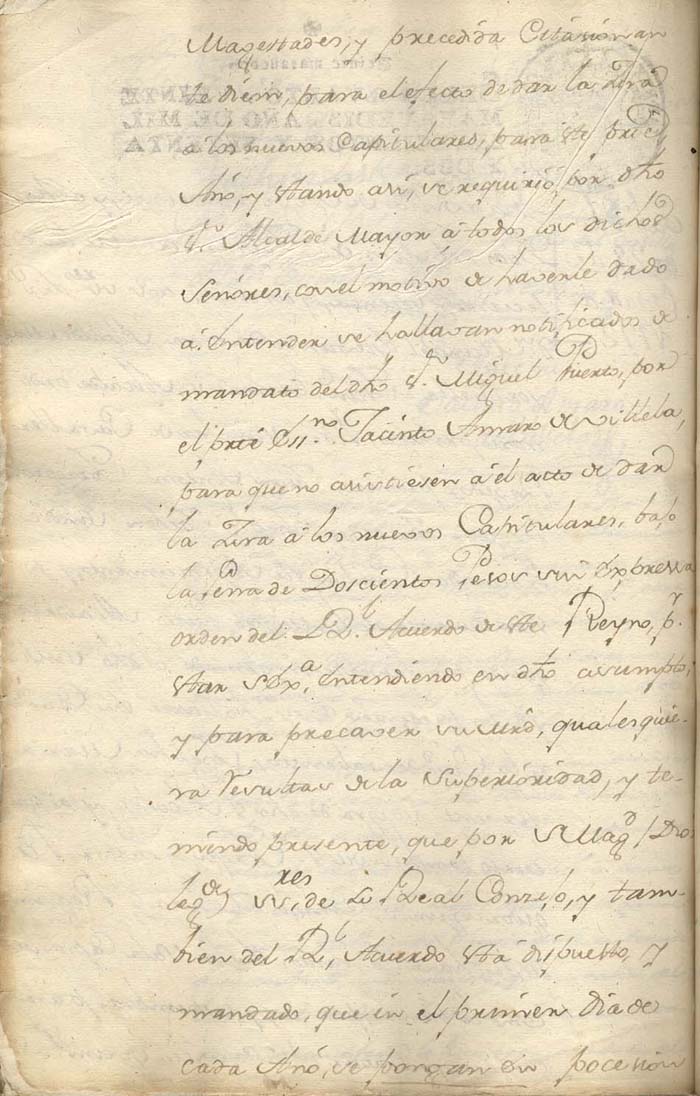 Magestades, y precedida Citasion an
te diem, para el efecto de dar la Zrã
a los nuevos Capitulares, para este preᵉ
Año, y estando asi, se requirió por dhõ
Sr. Alcalde Mayor á todos los dichos
Señores, con el motivo de haverle dado
á entender se hallavan notificados de
mandato del dhõ Sr. Miguel Puerto, por
el prẽ Essno. Jacinto Amaro de Villela,
para que no asistiesen á el acto de dar
la Zrra a los nuevos Capitulares, bajo
la Pena de Doscientos Pesos sin expressa
orden del Rl. Acuerdo de este Reyno, pr.
estar S Exa. Entendiendo en dhõ asumpto,
y para precaver su Mrd, qualesquie-
ra resultas de la Superioridad, y te-
niendo presente, que por S Magd (Dios
legde) SSres, de su Real Consejo, y tam-
bien del Rl. Acuerdo está dispuesto, y
mandado, que en el primer dia de
cada Año, se pongan en pocesion